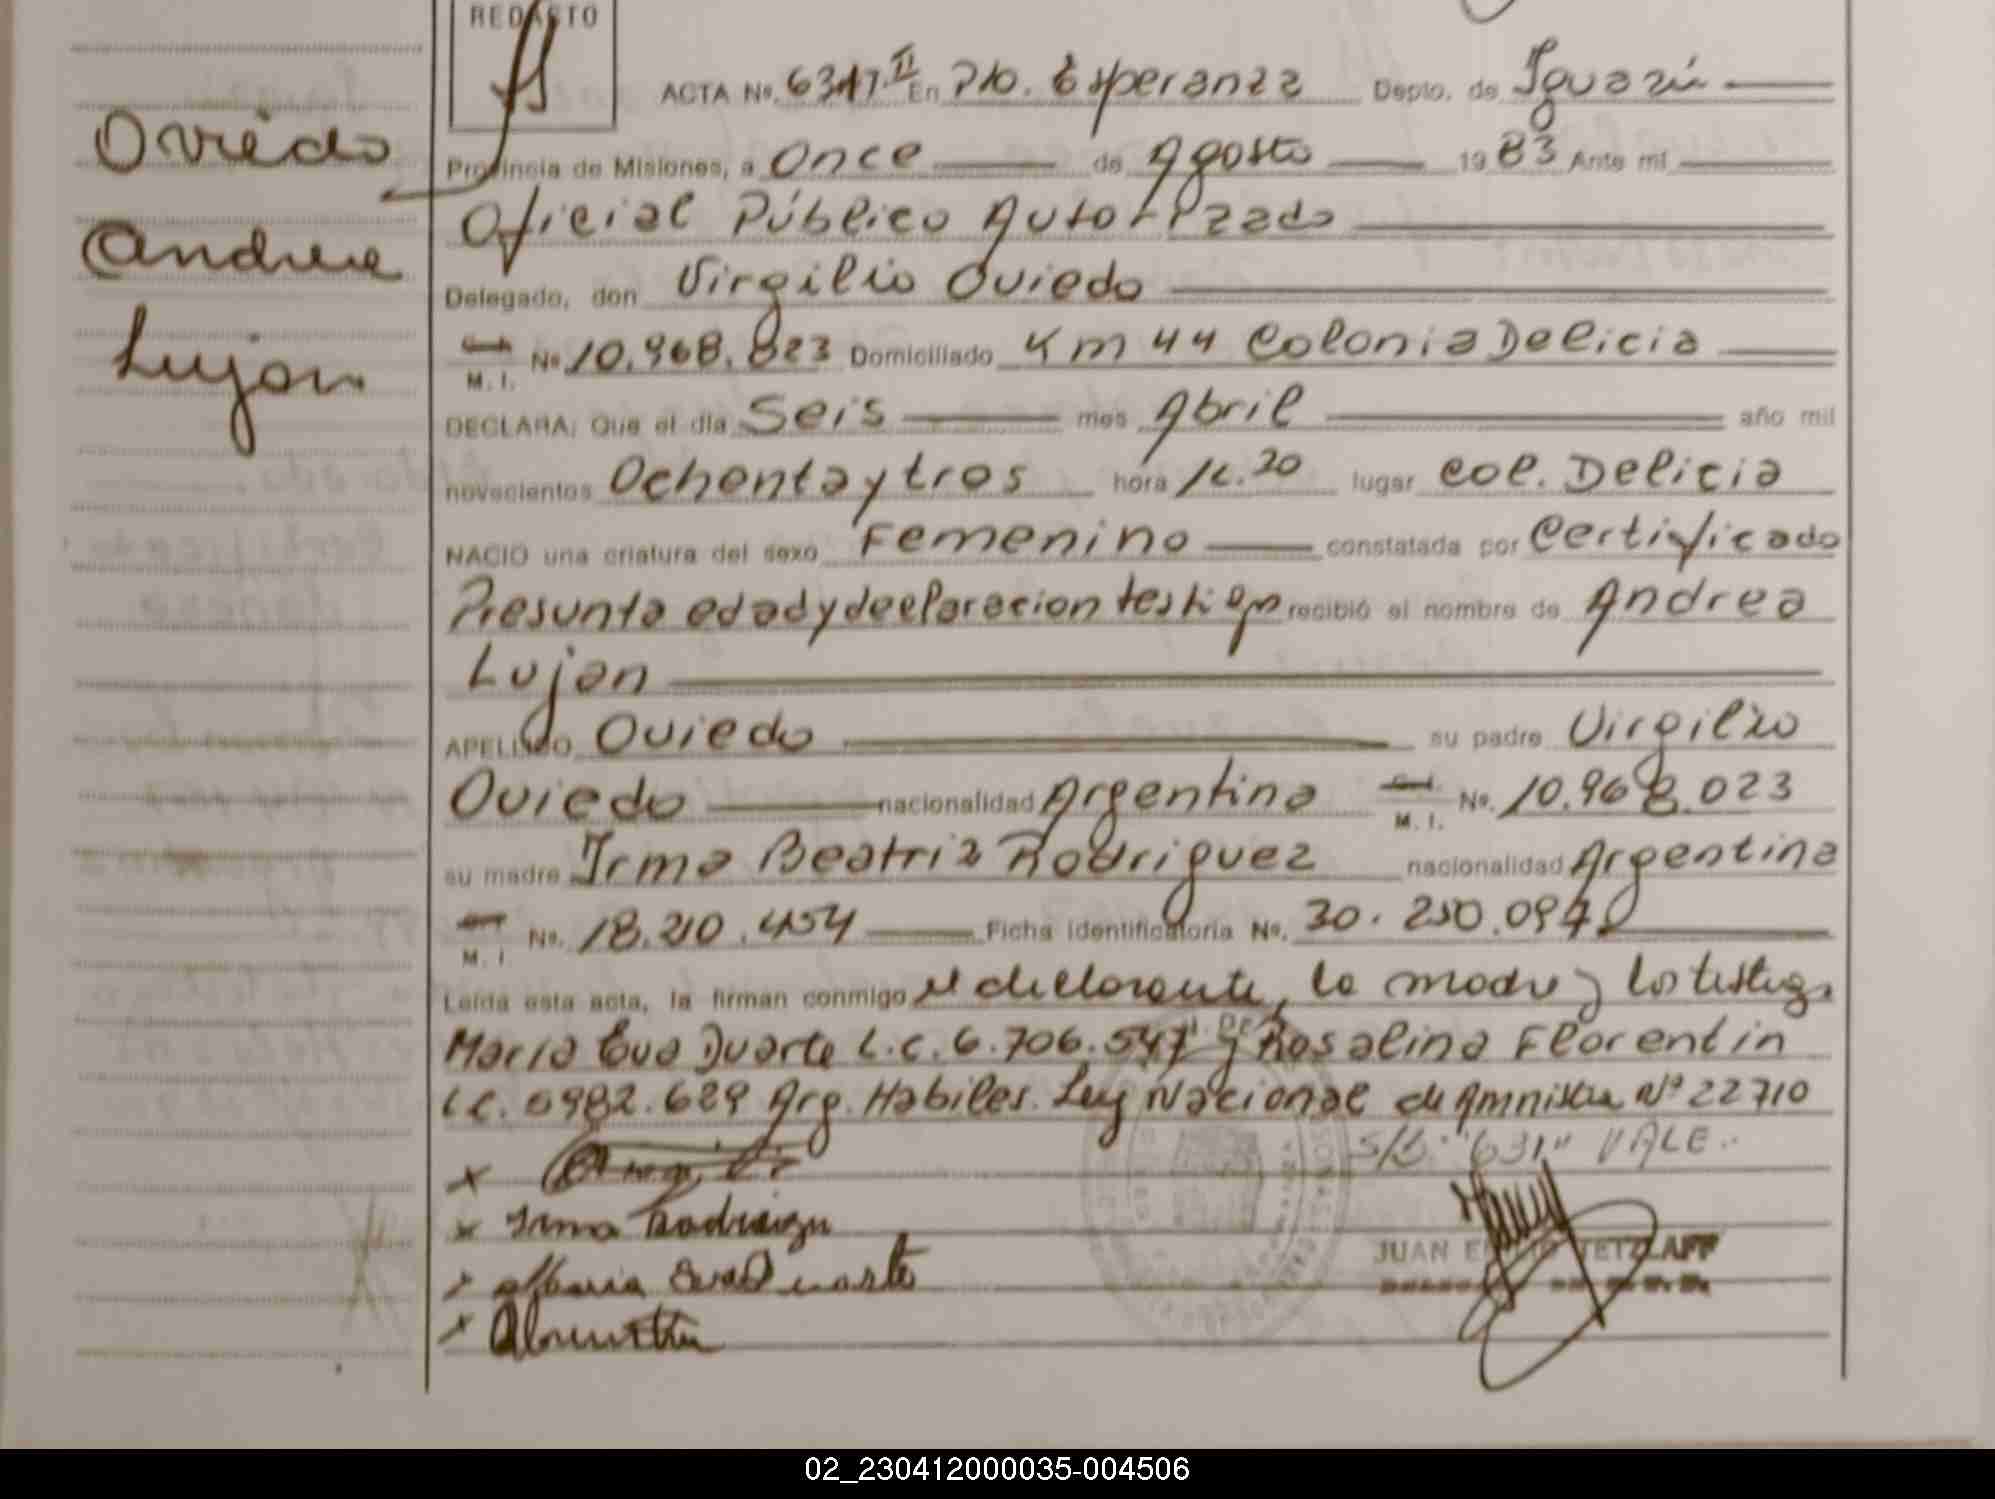 REDACTO
ACTA Nº. 6317 II En Pto. Esperanza Depto. de Iguazú
Oviedo
Andrea
Lujan
Provincia de Misiones, a Once de Agosto 1983 Ante mí
Oficial Público Autorizado
Delegado, don Virgilio Oviedo
M. I. Nº 10.968.823 Domiciliado Km 44 Colonia Delicia
DECLARA: Que el día Seis mes Abril año mil
novecientos Ochenta y tres hora 1 .20 lugar Col. Delicia
NACIO una criatura del sexo Femenino constatada por Certificado
Presunta edad y declaracion testigo recibió el nombre de Andrea
Lujan
APELLIDO Oviedo su padre Virgilio
Oviedo nacionalidad Argentina M. I. Nº. 10.968.023
su madre Irma Beatriz Rodriguez nacionalidad Argentina
M. I. Nº. 18.210.454 Ficha identificatoria Nº. 30.250.094
Leída esta acta, la firman conmigo el declarante, la madre y los testigs
Maria Eva Duarte L.C. 6.706.547 y Rosalina Florentin
LC. 5982.629 Arg. Habiles. Ley Nacional de Amnistia Nº 22710
S/B: "631" VALE..
x
x Irma Rodriguez
x Maria Eva Duarte
x
JUAN E TETZLAFF
02_230412000035-004506